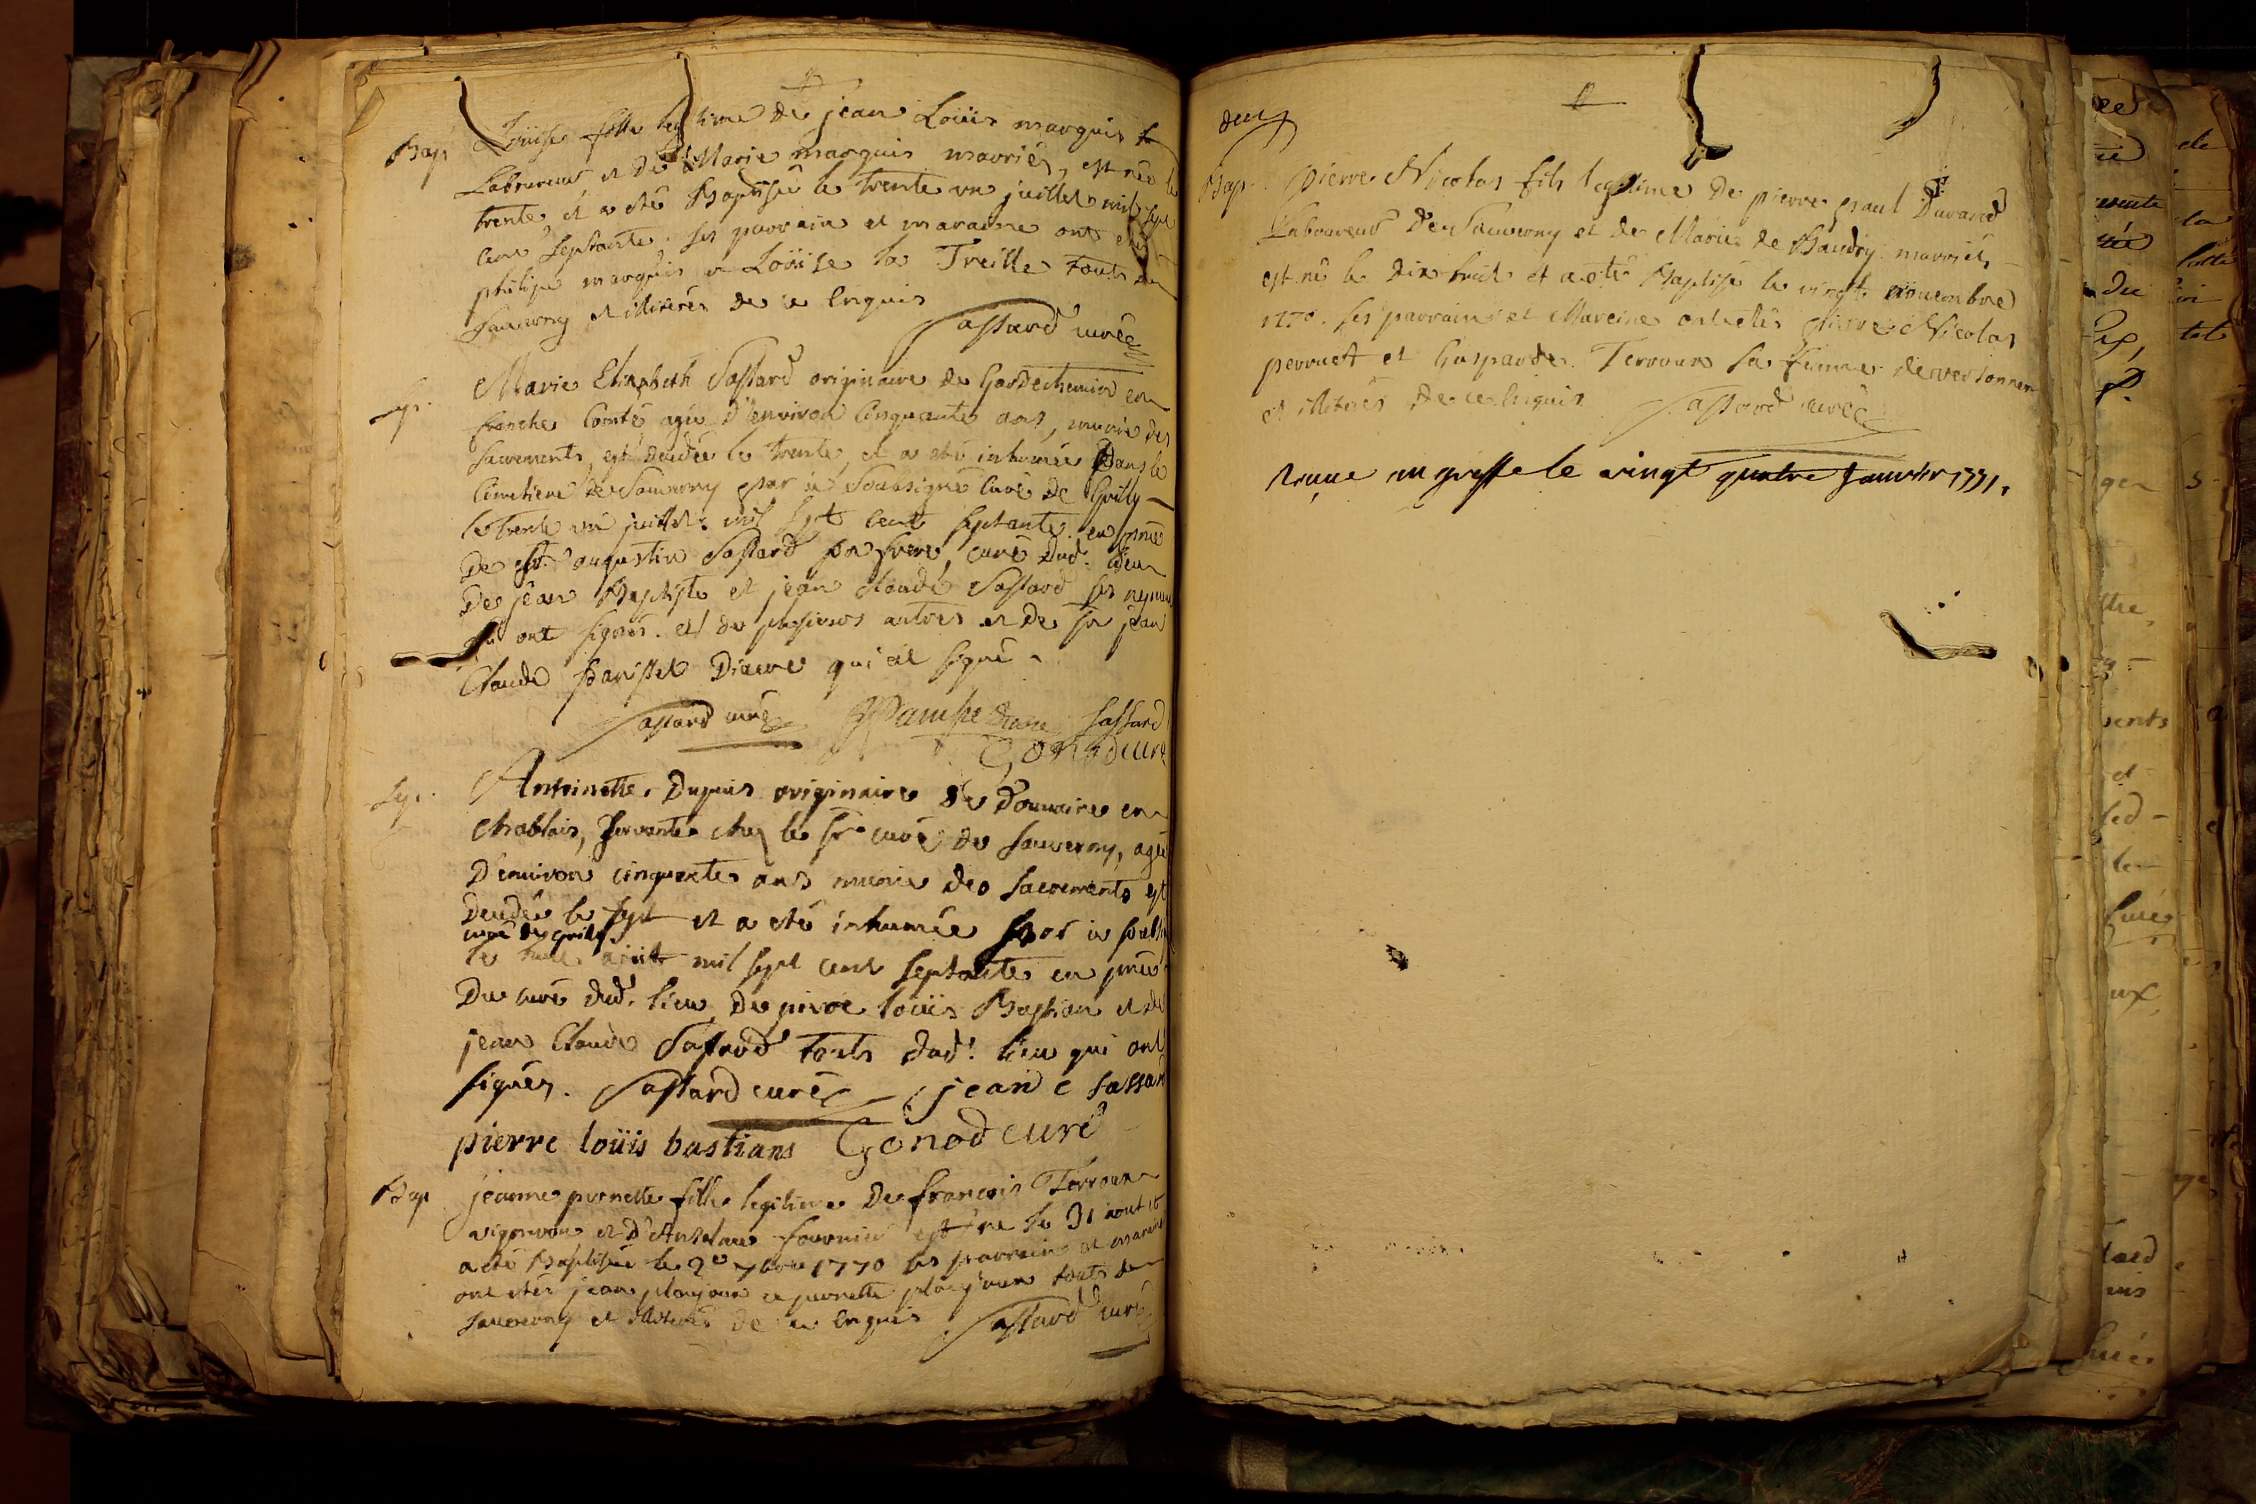 Bap Loüise fille legitime de jean Loüis marquis
Laboureur et de Marie marquis mavriés, est née le
trente, et a été Baptisée le trente un juillet mil sept
cent septante. ses parrain et maraine ont etés
philipe marquis et Loüise la Treille touts de
Sauverny et illiterés de ce Enquis
Sassard curé
Sep. Marie Elizabeth Sassard originaire de en
franche Comté agée d'environ Cinquante ans, munie des
sacrements, est decedée le trente, et a eté inhumée Dans le
Cimetiere de Sauverny par je soussigné Curé de Grilly
le trente un juillet mil sept cent septante en pnce
De Sr. augustin Sassard son frere, curé dud. lieu
De jean Baptiste et jean claude Sassard ses neveux
qui ont signés. et de plusieurs autres et de Sr jean
Claude parisset Diacre qui at signé
Sassard curé Diacre Sassard
Gonod curé
Sep. Antoinette Dupuis originaire de Douvaine en
chablais, servante chez le sr curé de Sauverny, agée
D'environ cinquante ans munie des sacrements est
decedée le sept et a eté inhumée par je
curé de grilly
le huit aout mil sept cent septante en pnce
Du curé dud. lieu, de pierre loüis Bastian et de
jean Claude Sassard touts dud. lieu qui ont
signés. Sassard curé jean c sassard
pierre loüis bastians Gonod curé
Bap jeanne pernette fille legitime de françois Terroux
vigneron et fournier est né le 31 aout et
a eté Baptisée le 2e 7bre 1770 ses parrain et maraine
ont etés jean et pernette touts de
Sauverny et illiterés de ce Enquis Sassard curé
deux
Bap. pierre Nicolas fils legitime De pierre paul Durand
Laboureur De Sauverny et de Marie de Baudry mavriés
est né le dix huit et a eté Baptisé le vingt novembre
1770. ses parrain et Mareine ont etés pierre Nicolas
perruet et Gasparde Terroux sa femme de versonnex
et illiterés de ce Enquis Sassard curé
Remue au greffe le vingt quatre Janvier 1771.